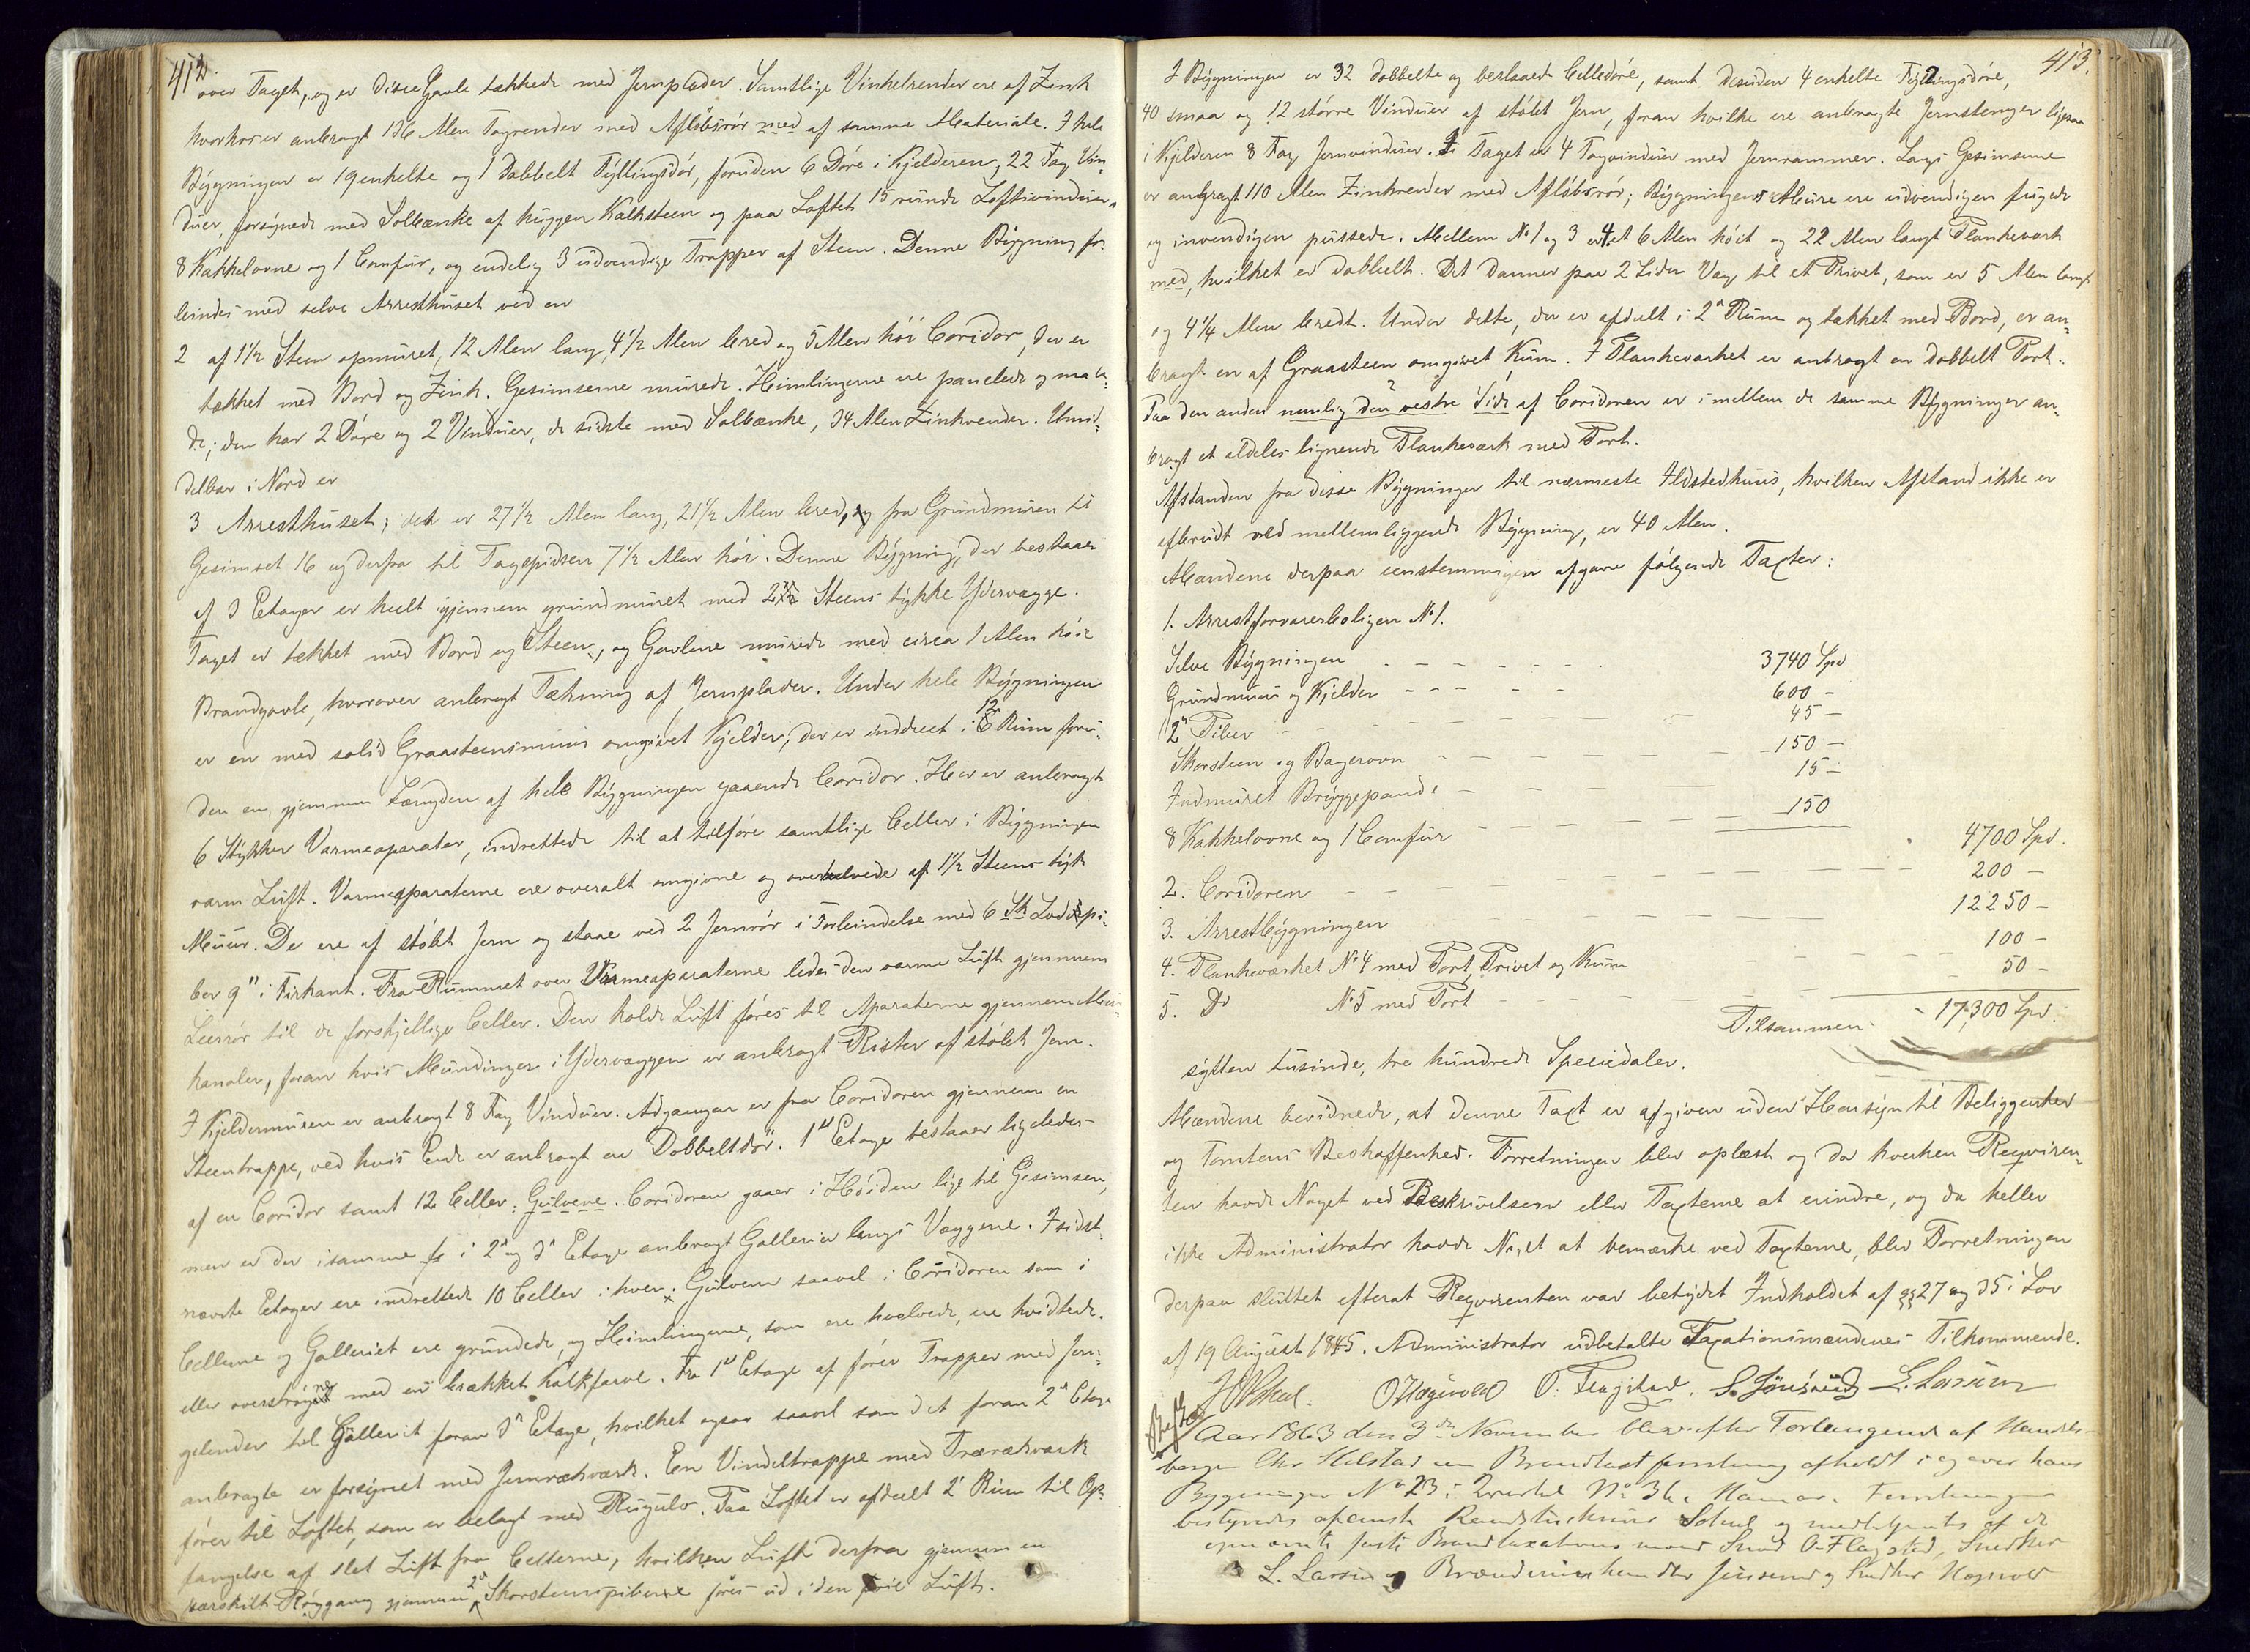 412.
over Taget, og er disse Gavle tækkede med Jernplader. Samtlige Vinkelrender ere af Zink
hvorhos er anbragt 136 Alen Tagrender med Afløbsrør med af samme Materiale. I hele
Bygningen er 19 enkelte og 1 dobbelt Fyllingsdør, foruden 6 Døre i Kjelderen, 22 Fag Vin-
duer, forsynede med Solbænke af huggen Kalksteen og paa Loftet 15 runde Loftsvinduer,
8 Kakkelovne og 1 Comfur, og endelig 3 udvendige Trapper af Steen. Denne Bygning for-
bindes med selve Arresthuset ved en
2 af 1½ Steen opmuret, 12 Alen lang, 4½ Alen bred og 5 Alen høi Coridor, der er
tækket med Bord og Zink. Gesimserne murede. Himlingerne ere panelede og male-
de; den har 2 Døre og 2 Vinduer, de sidste med Solbænke, 34 Alen Zinkrender. Umid-
delbar i Nord er
3 Arresthuset; det er 27½ Alen lang, 21½ Alen bred, og fra Grundmuren til
Gesimset 16 og derfra til Tagspidsen 7½ Alen høi. Denne Bygning, der bestaaer
af 3 Etager er heelt igjennem grundmuret med 2½ Steens tykke Ydervægge.
Taget er tækket med Bord og Steen, og Gavlene murede med circa 1 Alen høie
Brandgavle, hvorover anbragt Tækning af Jernplader. Under hele Bygningen
er en med solid Graasteensmuur omgivet Kjelder, der er inddeelt i 12 Rum foru-
den en, gjennem Længden af hele Bygningen gaaende Coridor. Her er anbragt
6 Stykker Varmeaparater, indrettede til at tilføre samtlige Celler i Bygningen
varm Luft. Varmeaparaterne ere overalt omgivne og overhvelvede af 1½ Steens tyk
Muur. De ere af støbt Jern og staae ved 2 Jernrør i Forbindelse med 6 Stk Lodspi-
ber 9" i Firkant. Fra Rummet over Varmeaparaterne ledes den varme Luft gjennem
Leerrør til de forskjellige Celler. Den kolde Luft føres til Aparaterne gjennem Muur-
kanaler, foran hvis Mundinger i Ydervæggen er anbragt Rister af støbt Jern.
I Kjeldermuren er anbragt 8 Fag Vinduer. Adgangen er fra Coridoren gjennem en
Steentrappe, ved hvis Ende er anbragt en Dobbeltdør. 1ste Etage bestaaer ligeledes
af en Coridor samt 12 Celler: Gulvene. Coridoren gaaer i Høiden lige til Gesimsen,
men er der i samme i 2den og 3die Etage anbragt Gallerier langs Væggene. I sidst-
nævnte Etager ere indrettede 10 Celler i hver. Gulvene saavel i Coridoren som i
Cellerne og Galleriet ere grundede, og Himlingerne, som ere hvelvede, ere hvidtede.
eller overstrøgne med en brækket Kalkfarve. Fra 1ste Etage af fører Trapper med Jern-
gelender til Galleriet foran 3die Etage, hvilket ogsaa saavel som det foran 2den Etage
anbragte er forsynet med Jernrækværk. En Vindeltrappe med Trærækværk
fører til Loftet, som er belagt med Rugulv. Paa Loftet er afdeelt 2 Rum til Op-
fangelse af slet Luft fra Cellerne, hvilken Luft derfra gjennem en
særskilt Røggang gjennem 2de Skorsteenspiberne føres ud i den frie Luft.
413.
I Bygningen er 32 dobbelte og beslaaede Celledøre, samt desuden 4 enkelte Fyllingsdøre,
40 smaa og 12 større Vinduer af støbt Jern, foran hvilke ere anbragte Jernstænger ligesaa
i Kjelderen 8 Fag Jernvinduer. I Taget er 4 Tagvinduer med Jernrammer. Langs Gesimserne
er anbragt 110 Alen Zinkrender med Afløbsrør; Bygningens Mure ere udvendigen fugede
og invendigen pudsede. Mellem No 1 og 3 er 4 et 6 Alen høit og 22 Alen langt Plankeværk
med, hvilket er dobbelt. Det danner paa 2 Sider Væg til et Privet, som er 5 Alen langt
og 4¼ Alen bredt. Under dette, der er afdeelt i 2de Rum og tækket med Bord, er an-
bragt en af Graasteen omgivet Kum. I Plankeværket er anbragt en dobbelt Port.
Paa den anden nemlig den vestre Side af Coridoren er imellem de samme Bygninger an-
bragt et aldeles lignende Plankeværk med Port.
Afstanden fra disse Bygninger til nærmeste Ildstedhuus, hvilken Afstand ikke er
afbrudt ved mellemliggende Bygning, er 40 Alen.
Mændene derpaa eenstemmigen afgave følgende Taxter:
1. Arrestforvarerboligen No 1.
Selve Bygningen 3740 Spd
Grundmuur og Kjelder 600 -
2de Piber 45 -
Skorsteen og Bagerovn 150 -
Indmuret Bryggepande 15 -
8 Kakkelovne og 1 Comfur 150
4700 Spd.
2. Coridoren 200 -
3. Arrestbygningen 12250 -
4. Plankeværket No 4 med Port, Privet og Kum 100 -
5. Do No 5 med Port 50 -
Tilsammen 17,300 Spd.
sytten tusinde, tre hundrede Speciedaler.
Mændene bevidnede, at denne Taxt er afgiven uden Hensyn til Beliggenhed
og Tomtens Beskaffenhed. Forretningen blev oplæst og da hverken Reqviren-
ten havde Noget ved Beskrivelsen eller Taxterne at erindre, og da heller
ikke Administrator havde Noget at bemærke ved Taxterne, blev Forretningen
derpaa sluttet efterat Reqvirenten var betydet Indholdet af §§ 27 og 35 i Lov
af 19 August 1845. Administrator udbetalte Taxationsmændenes Tilkommende.
O. Flagstad. L. Larsen
Aar 1863 den 3die November blev efter Forlangende af Handels-
borger Chr en Brandtaxtforretning afholdt i og over hans
Bygninger No 23 i Qvartal No 36 i Hamar. Forretningen
bestyredes af
faste Brandtaxationsmænd Smed O. Flagstad, Snedker
L. Larsen og og Snedker